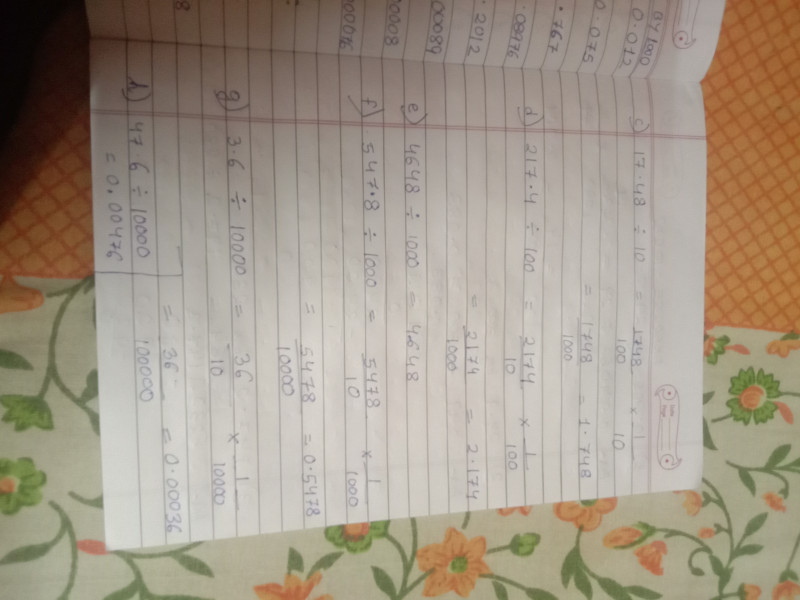 c) 17.48 ÷ 10 = 1748/100 × 1/10
= 1748/100 = 1.748
d) 217.4 ÷ 100 = 2174/10 × 1/100
= 2174/1000 = 2.174
e) 4648 ÷ 1000 = 4648
f) 547.8 ÷ 1000 = 5478/10 × 1/1000
= 5478/10000 = 0.5478
g) 3.6 ÷ 10000 = 36/10 × 1/10000
= 36/100000 = 0.00036
h) 47 6 ÷ 10000
= 0.00476
0.072
0.075
.767
.08976
.2012
00089
0008
00076
8